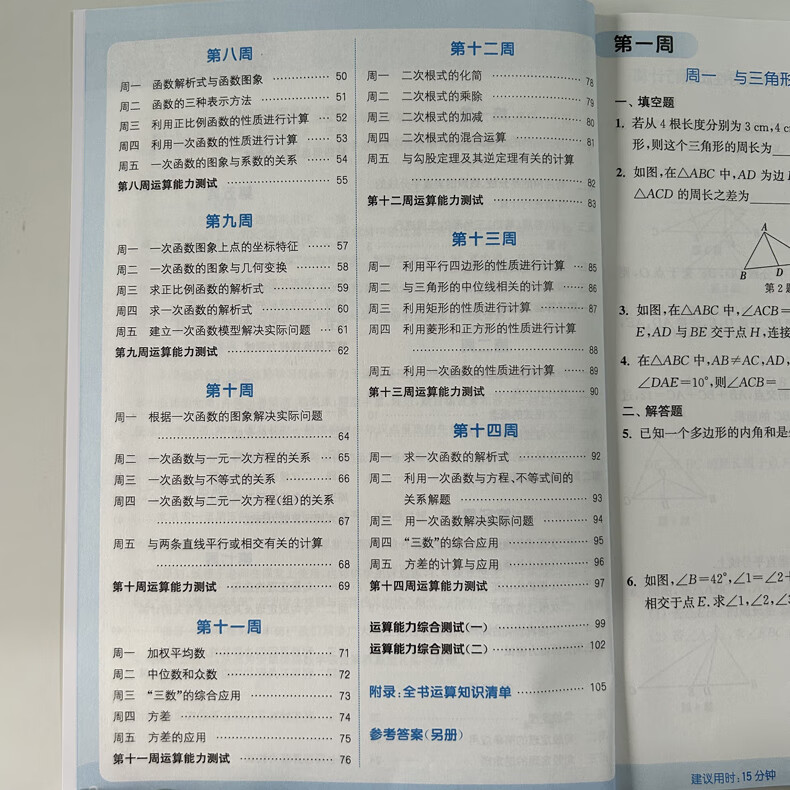 第八周
周一 函数解析式与函数图象 …………… 50
周二 函数的三种表示方法 …………… 51
周三 利用正比例函数的性质进行计算 … 52
周四 利用一次函数的性质进行计算 …… 53
周五 一次函数的图象与系数的关系 …… 54
第八周运算能力测试 …………… 55
第九周
周一 一次函数图象上点的坐标特征 …… 57
周二 一次函数的图象与几何变换 …… 58
周三 求正比例函数的解析式 …………… 59
周四 求一次函数的解析式 …………… 60
周五 建立一次函数模型解决实际问题 … 61
第九周运算能力测试 …………… 62
第十周
周一 根据一次函数的图象解决实际问题
…………… 64
周二 一次函数与一元一次方程的关系 … 65
周三 一次函数与不等式的关系 ………… 66
周四 一次函数与二元一次方程(组)的关系
…………… 67
周五 与两条直线平行或相交有关的计算
…………… 68
第十周运算能力测试 …………… 69
第十一周
周一 加权平均数 …………… 71
周二 中位数和众数 …………… 72
周三 “三数”的综合应用 …………… 73
周四 方差 …………… 74
周五 方差的应用 …………… 75
第十一周运算能力测试 …………… 76
第十二周
周一 二次根式的化简 …………… 78
周二 二次根式的乘除 …………… 79
周三 二次根式的加减 …………… 80
周四 二次根式的混合运算 …………… 81
周五 与勾股定理及其逆定理有关的计算
…………… 82
第十二周运算能力测试 …………… 83
第十三周
周一 利用平行四边形的性质进行计算 … 85
周二 与三角形的中位线相关的计算 …… 86
周三 利用矩形的性质进行计算 ………… 87
周四 利用菱形和正方形的性质进行计算
…………… 88
周五 利用一次函数的性质进行计算 …… 89
第十三周运算能力测试 …………… 90
第十四周
周一 求一次函数的解析式 …………… 92
周二 利用一次函数与方程、不等式间的
关系解题 …………… 93
周三 用一次函数解决实际问题 ………… 94
周四 “三数”的综合应用 …………… 95
周五 方差的计算与应用 …………… 96
第十四周运算能力测试 …………… 97
运算能力综合测试(一) …………… 99
运算能力综合测试(二) …………… 102
附录:全书运算知识清单 …………… 105
参考答案(另册)
第一周
周一 与三角形
一、填空题
1. 若从 4 根长度分别为 3 cm,4 c
形,则这个三角形的周长为
2. 如图,在△ABC 中,AD 为边
△ACD 的周长之差为
A
B D
第 2 题
3. 如图,在△ABC 中,∠ACB=
E,AD 与 BE 交于点 H,连接
4. 在△ABC 中,AB≠AC,AD,
∠DAE=10°,则∠ACB=
二、解答题
5. 已知一个多边形的内角和是
6. 如图,∠B=42°,∠1=∠2+
相交于点 E.求∠1,∠2,∠3
建议用时:15 分钟